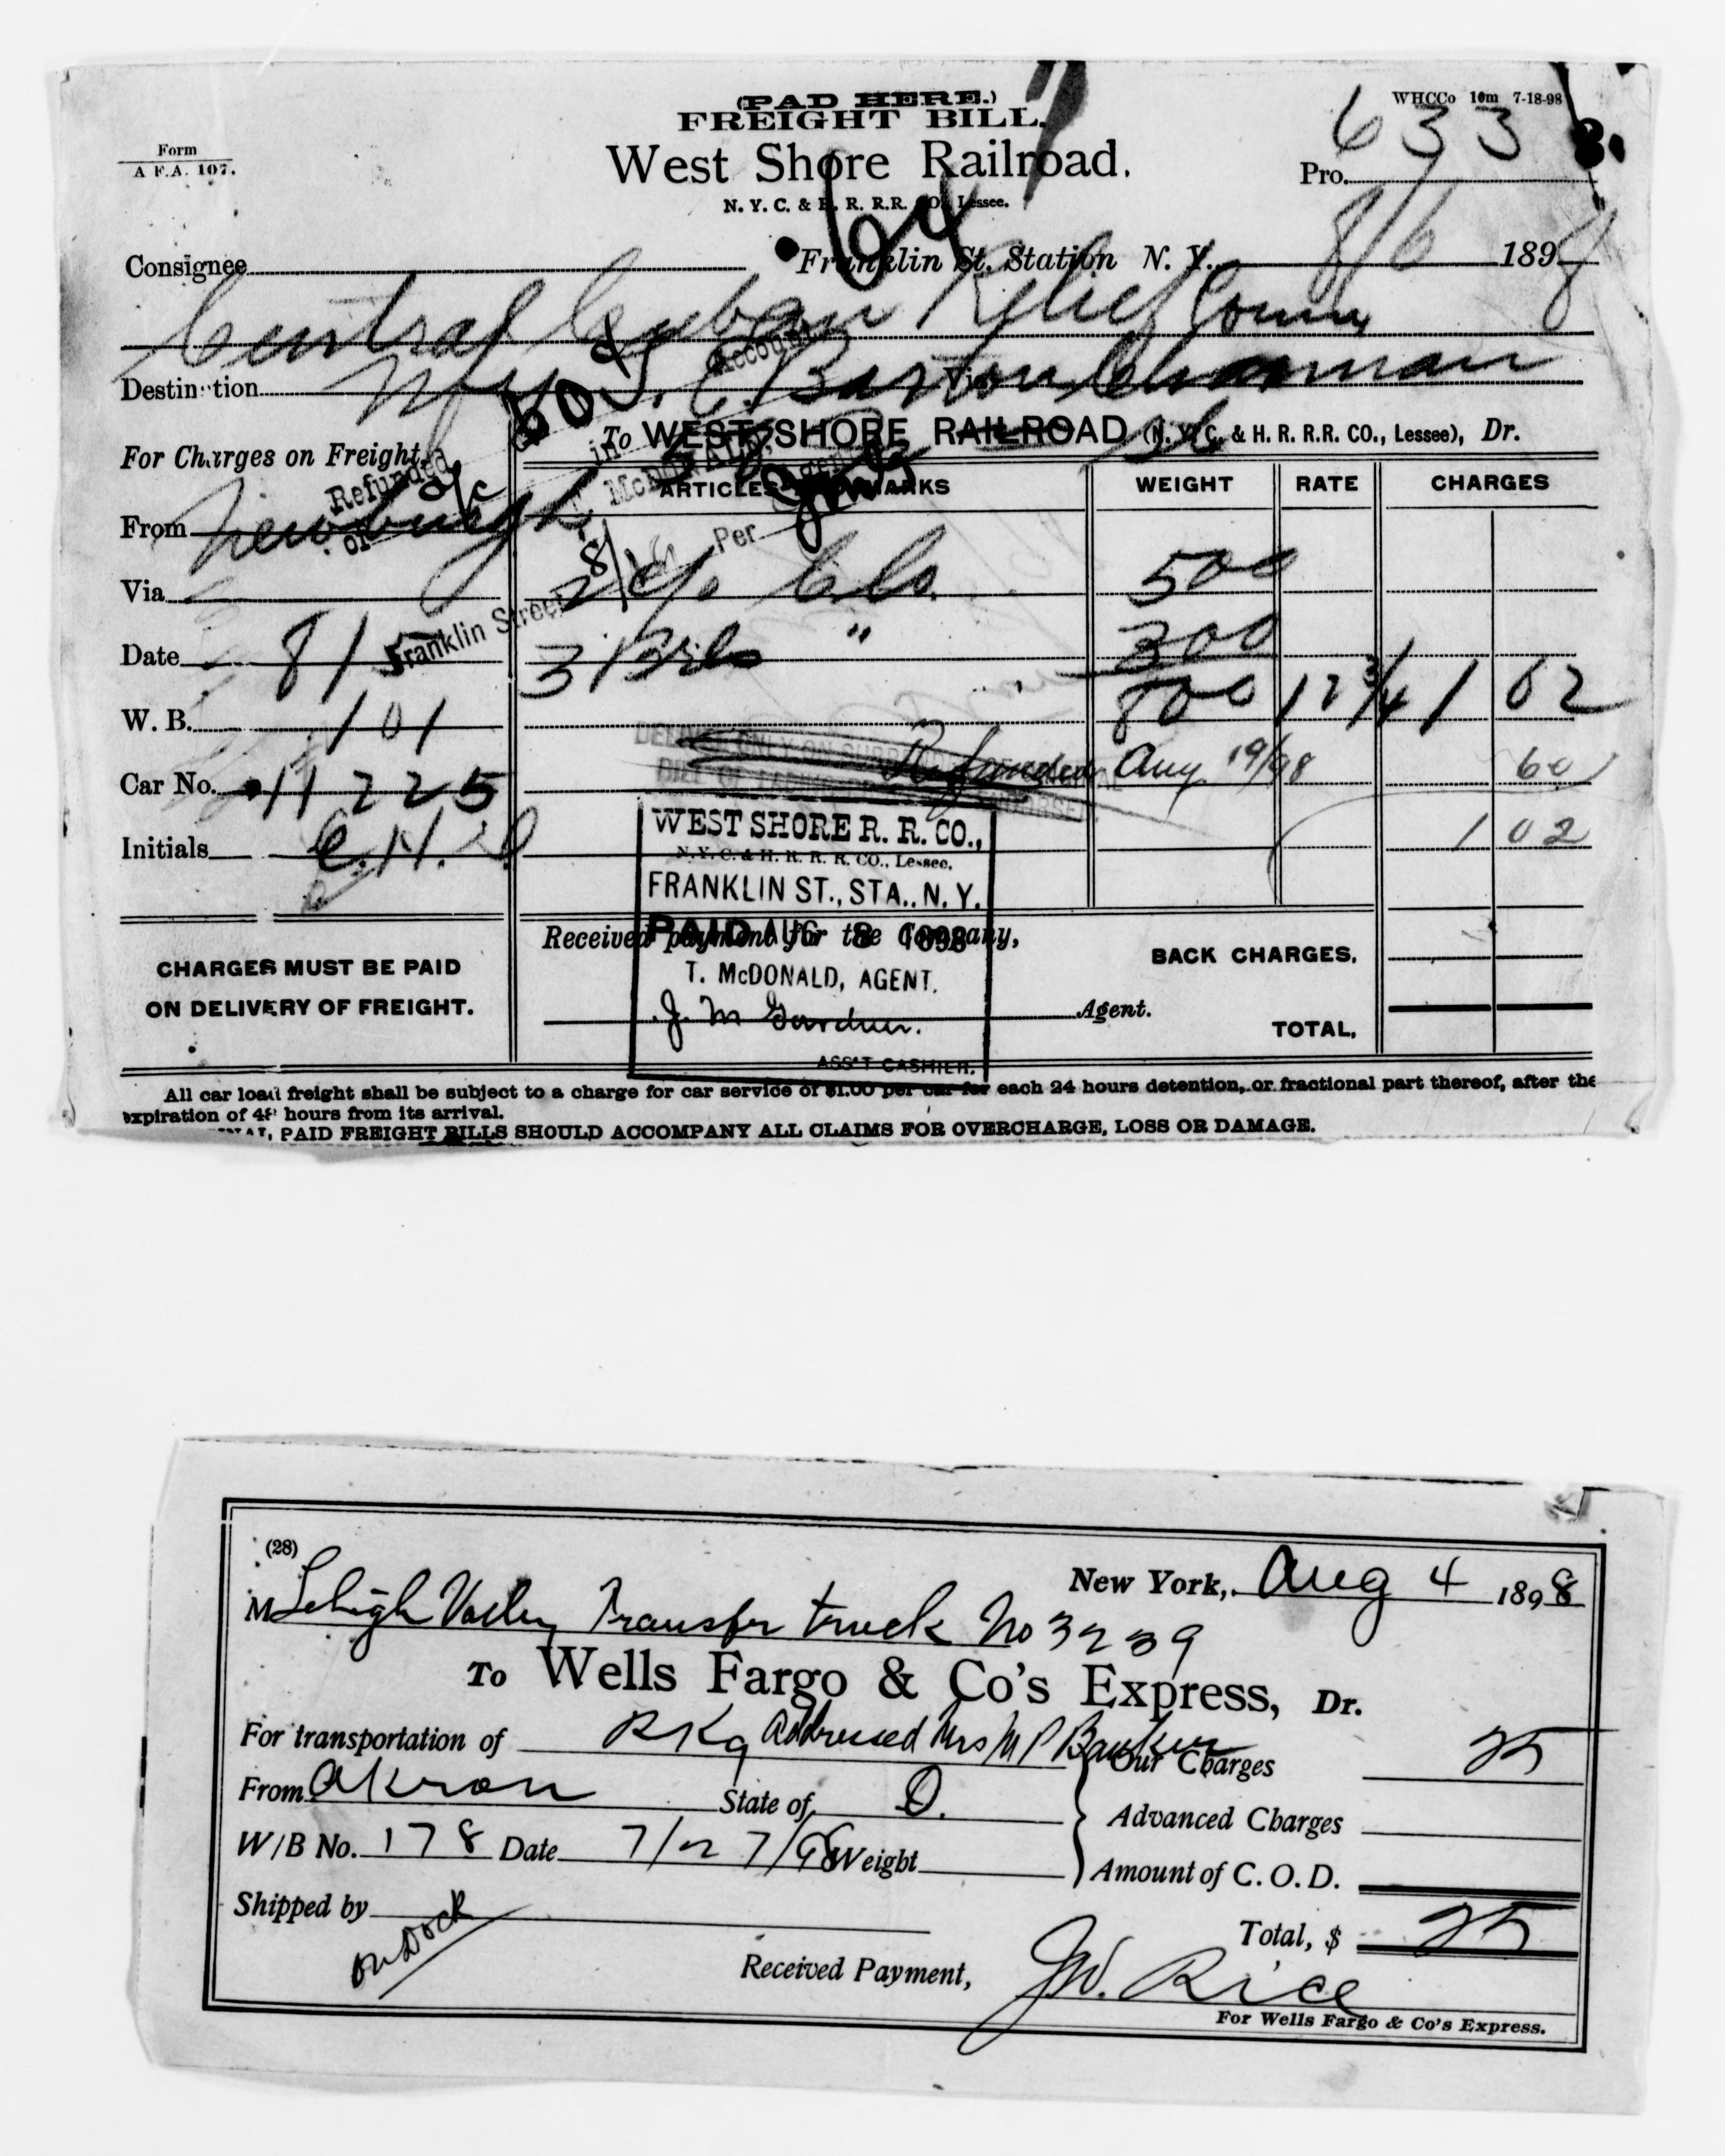 (PAD HERE.)
FREIGHT BILL.
WHCCo 10m 7-18-98
Form
A F.A. 107.
West Shore Railroad.
Pro. 633
N. Y. C. & H. R. R.R. CO., Lessee.
64
Consignee Franklin St. Station N. Y. 8/6 1898
Central Cuban Relief Comm
Destin tion S. E. Barton Chairman
To WEST SHORE RAILROAD (N. Y. C. & H. R. R.R. CO., Lessee), Dr.
For Charges on Freight,
ARTICLES MARKS WEIGHT RATE CHARGES
Refunded 60
or a/c
in Account
T. McDONALD, Agent
8/16 Per
Franklin Street
From Newburgh
Via
2 c/s Clo. 500
Date 8/5
3 Brls " 300
W. B. 101
800 12 3/4 1 62
Car No. 11225
Refunded Aug 19/98 60
DELIVER ONLY ON SURRENDER ORIGINAL
BILL OF LADING
Initials
1 02
WEST SHORE R. R. CO.,
N. Y. C. & H. R. R. R. CO., Lessee.
FRANKLIN ST., STA., N. Y.
PAID AUG 8 1898
T. McDONALD, AGENT.
J. M Gardner.
ASS'T CASHIER.
Received payment for the Company,
Agent.
CHARGES MUST BE PAID
ON DELIVERY OF FREIGHT.
BACK CHARGES,
TOTAL,
All car load freight shall be subject to a charge for car service of $1.00 per car for each 24 hours detention, or fractional part thereof, after the
expiration of 48 hours from its arrival.
PAID FREIGHT BILLS SHOULD ACCOMPANY ALL CLAIMS FOR OVERCHARGE, LOSS OR DAMAGE.
(28)
New York, Aug 4 1898
M Lehigh Valley Transfer truck No 3239
To Wells Fargo & Co's Express, Dr.
For transportation of Pkg addressed Mrs M P Banker
Our Charges 25
From Akron State of O.
Advanced Charges
W/B No. 178 Date 7/27/98 Weight
Amount of C. O. D.
Shipped by
On Dock
Total, $ 25
Received Payment, J.W. Rice
For Wells Fargo & Co's Express.